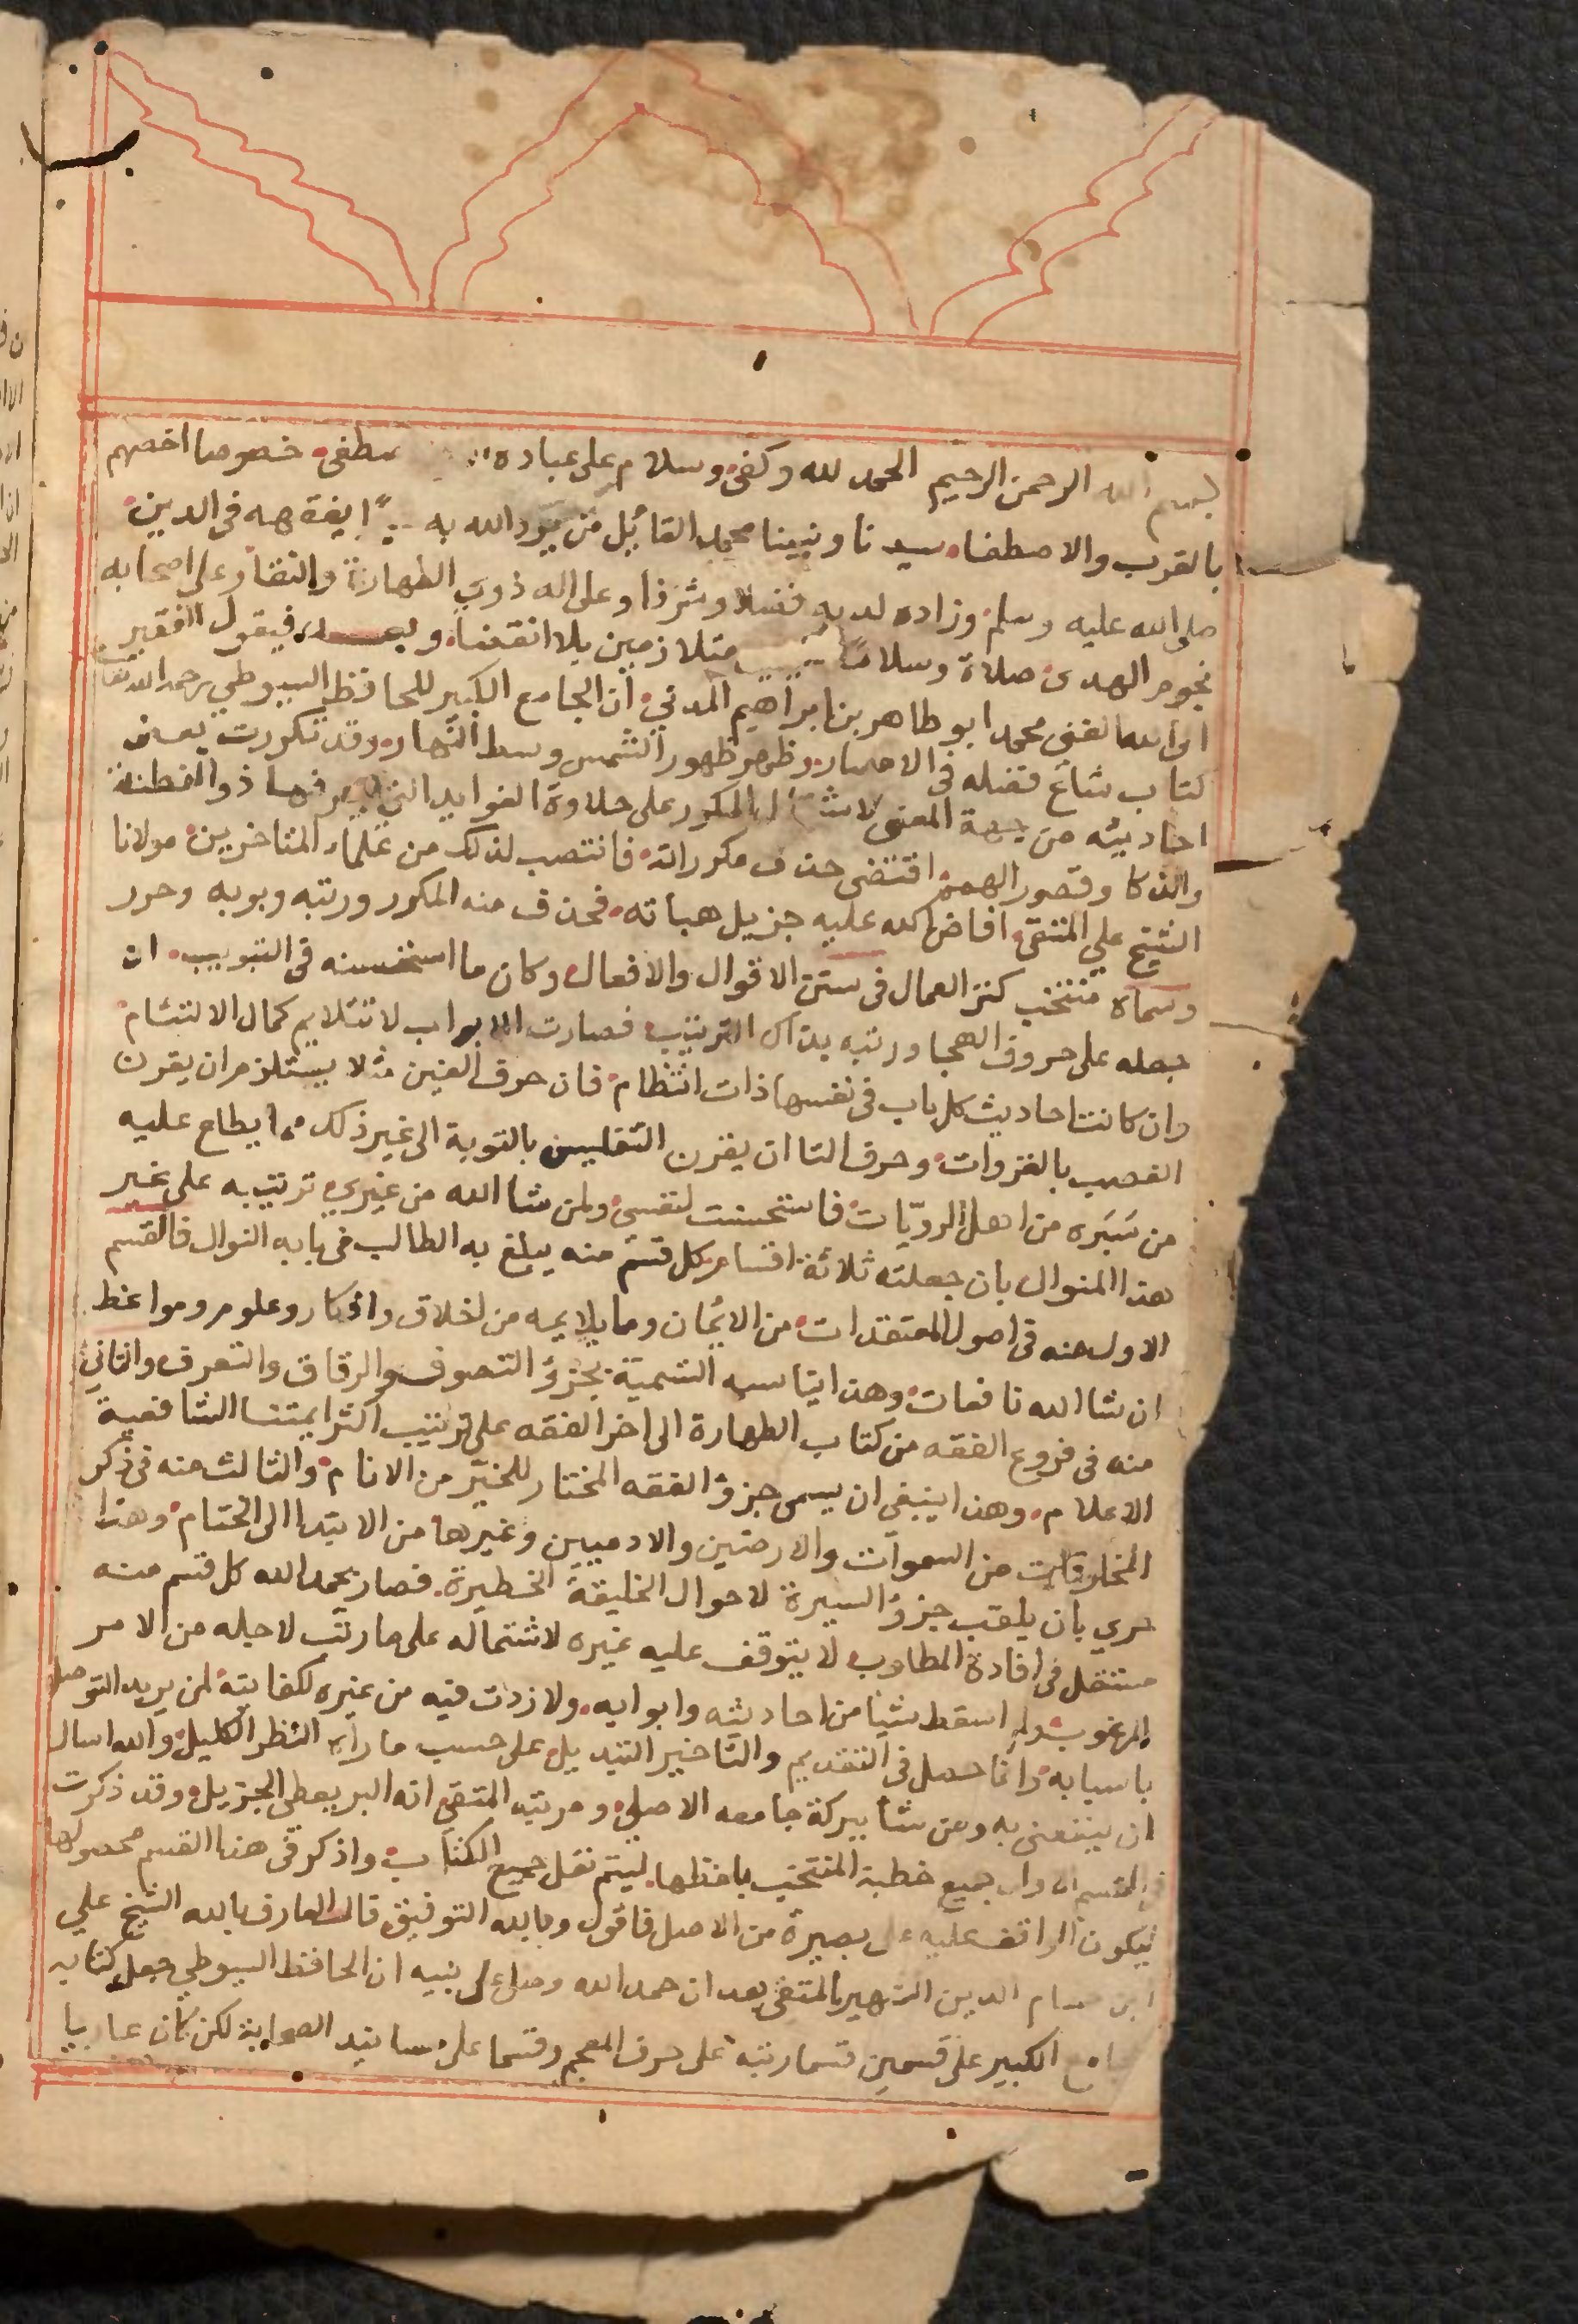 بسم الله الرحمن الرحيم الحمد لله وكفى وسلام على عباده خصوصا اخصهم
بالقرب والاصطفاء سيدنا ونبينا محمد القائل من يرد الله به يفقهه في الدين
صلى الله عليه وسلم وزاده لديه فضلا وشرفا وعلى اله ذوي الطهارة والنقا وعلى اصحابه
نجوم الهدى صلاة وسلاما متلازمين بلا انقضا وبعد فيقول الفقير
الى الله الغني محمد ابو طاهر بن ابراهيم المدني ان الجامع الكبير للحافظ السيوطي رحمه الله تعالى
كتاب شاع فضله في الامصار وظهر ظهور الشمس وسط النهار وقد تكررت بعض
احاديثه من جهة المعنى المكرر على حلاوة الفوايد التي يعرفها ذو الفطنة
والذكا وقصور الهمم اقتضى حذف مكرراته فانتصب لذلك من علماء المتاخرين مولانا
الشيخ علي المتقي افاض الله عليه جزيل هباته فحذف منه المكرر ورتبه وبوبه وحرر
وسماه منتخب كنز العمال في سنن الاقوال والافعال وكان ما استحسنه في التبويب ان
جعله على حروف الهجا ورتبه بذاك الترتيب فصارت الابواب لا تتلايم كمال الالتئام
وان كانت احاديث كل باب في نفسها ذات انتظام فان حرف الغين مثلا يستلزم ان يقرن
الغصب بالغزوات وحرف التا ان يقرن التفليس بالتوبة الى غير ذلك مما يطلع عليه
من سبره من اهل الرويات فاستحسنت لنفسي ولمن شا الله من غيري ترتيبه على غير
هذا المنوال بان جعلته ثلاثة اقسام كل قسم منه يبلغ به الطالب في بابه النوال فالقسم
الاول منه في اصول المعتقدات من الايمان وما يلايمه من اخلاق واذكار وعلوم ومواعظ
ان شا الله نافعات وهذا يناسبه التسمية بجزؤ التصوف والرقاق والتعرف والثاني
منه في فروع الفقه من كتاب الطهارة الى اخر الفقه على ترتيب اكثر ايمتنا الشافعية
الاعلام وهذا ينبغي ان يسمى جزؤ الفقه المختار للخير من الانام والثالث منه في ذكر
المخلوقات من السموات والارضين والادميين وغيرها من الابتدا الى الختام وهذا
حري بان يلقب جزؤ السيرة لاحوال الخليقة الخطيرة فصار بحمد الله كل قسم منه
مستقل في افادة المطلوب لا يتوقف عليه غيره لاشتماله على ما رتب لاجله من الامر
المرغوب ولم اسقط شيا من احاديثه وابوابه ولا زدت فيه من غيره لكفايته لمن يريد التوصل
باسبابه وانما حصل في التقديم والتاخير التبديل على حسب ما راه النظر الكليل والله اسال
ان ينفعني به ومن شا ببركة جامعه الاصلي ومرتبه المتقي انه البر يعطي الجزيل وقد ذكرت
في القسم الاول جميع خطبة المنتخب بلفظها ليتم نقل جميع الكتاب واذكر في هذا القسم محصولها
ليكون الواقف عليه على بصيرة من الاصل فاقول وبالله التوفيق قال العارف بالله الشيخ علي
ابن حسام الدين الشهير بالمتقي بعد ان حمد الله وصلى على نبيه ان الحافظ السيوطي جعل كتابه
الجامع الكبير على قسمين قسما رتبه على حرف المعجم وقسما على مسانيد الصحابة لكن كان عاريا